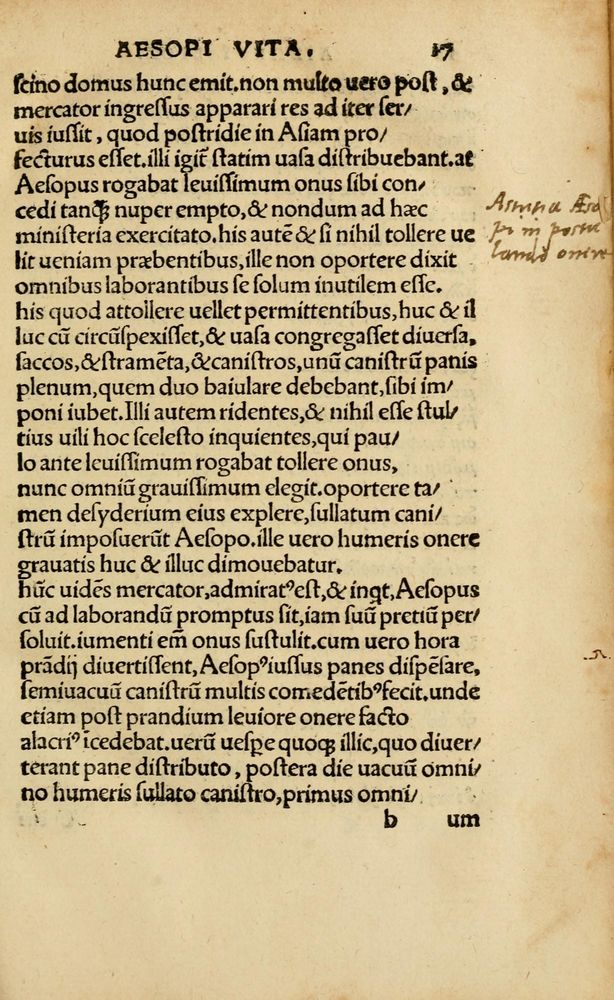 AESOPI VITA. 17
scino domus hunc emit. non multo uero post, &
mercator ingressus apparari res ad iter ser/
uis iussit, quod postridie in Asiam pro/
fecturus esset. illi igit᷑ statim uasa distribuebant. at
Aesopus rogabat leuissimum onus sibi con/
cedi tanꝗ̃ nuper empto, & nondum ad hæc
ministeria exercitato. his autē & si nihil tollere ue
lit ueniam præbentibus, ille non oportere dixit
omnibus laborantibus se solum inutilem esse.
his quod attollere uellet permittentibus, huc & il
luc cū circūspexisset, & uasa congregasset diuersa,
saccos, & stramēta, & canistros, unū canistrū panis
plenum, quem duo baiulare debebant, sibi im/
poni iubet. Illi autem ridentes, & nihil esse stul/
tius uili hoc scelesto inquientes, qui pau/
lo ante leuissimum rogabat tollere onus,
nunc omniū grauissimum elegit. oportere ta/
men desyderium eius explere, sullatum cani/
strū imposuerūt Aesopo. ille uero humeris onere
grauatis huc & illuc dimouebatur.
hūc uidēs mercator, admiratꝰ est, & inqt, Aesopus
cū ad laborandū promptus sit, iam suū pretiū per/
soluit. iumenti em̄ onus sustulit. cum uero hora
prādij diuertissent, Aesopꝰ iussus panes dispēsare,
semiuacuū canistrū multis comedētibꝰ fecit. unde
etiam post prandium leuiore onere facto
alacriꝰ icedebat. uerū uespe quoqꝫ illic, quo diuer/
terant pane distributo, postera die uacuū omni/
no humeris sullato canistro, primus omni/
b um
Astutia Æso
pi in postu
lando onere